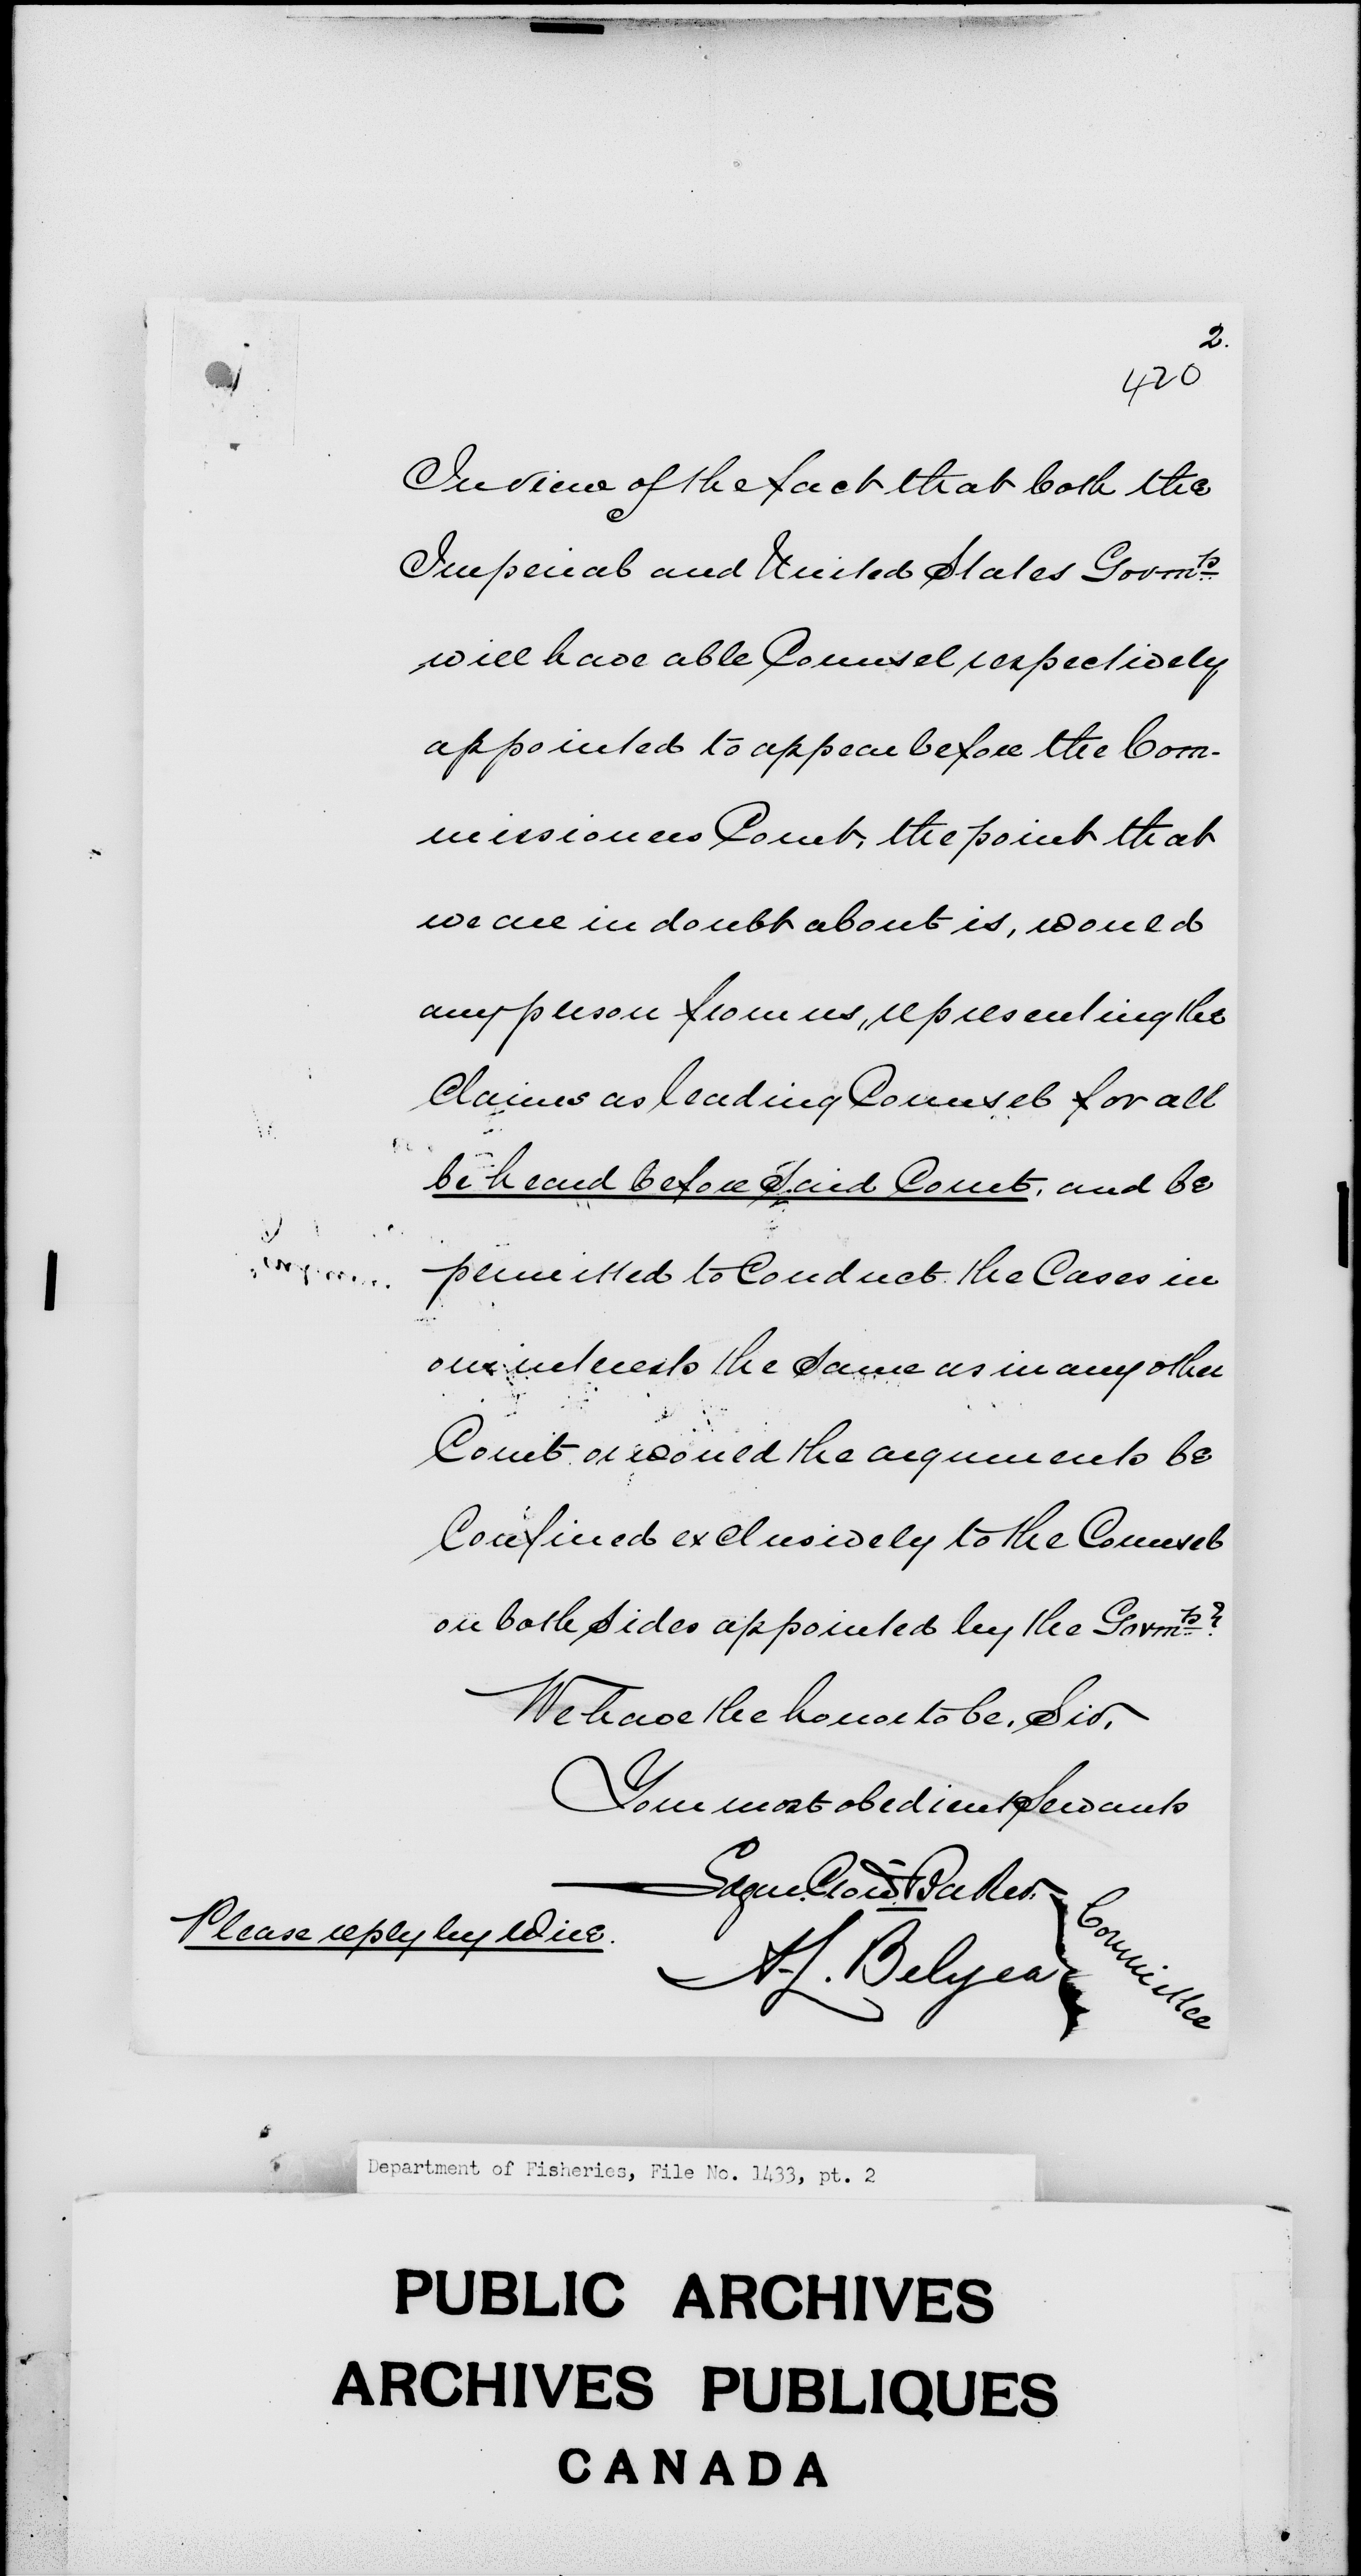 2.
420
In view of the fact that both the
Imperial and United States Govmts.
will have able Counsel respectively
appointed to appear before the Com-
missioners Court, the point that
we are in doubt about is, would
any person from us, representing the
Claims as leading Counsel for all
be heard before Said Court, and be
permitted to Conduct the Cases in
our interests the Same as in any other
Court or would the arguments be
Confined exclusively to the Counsel
on both Sides appointed by the Govmts?
We have the honor to be, Sir,
Your most obedient Servants
Edgar Crow Baker
Please reply by Wire.
A. L. Belyea
Committee
Department of Fisheries, File No. 1433, pt. 2
PUBLIC ARCHIVES
ARCHIVES PUBLIQUES
CANADA